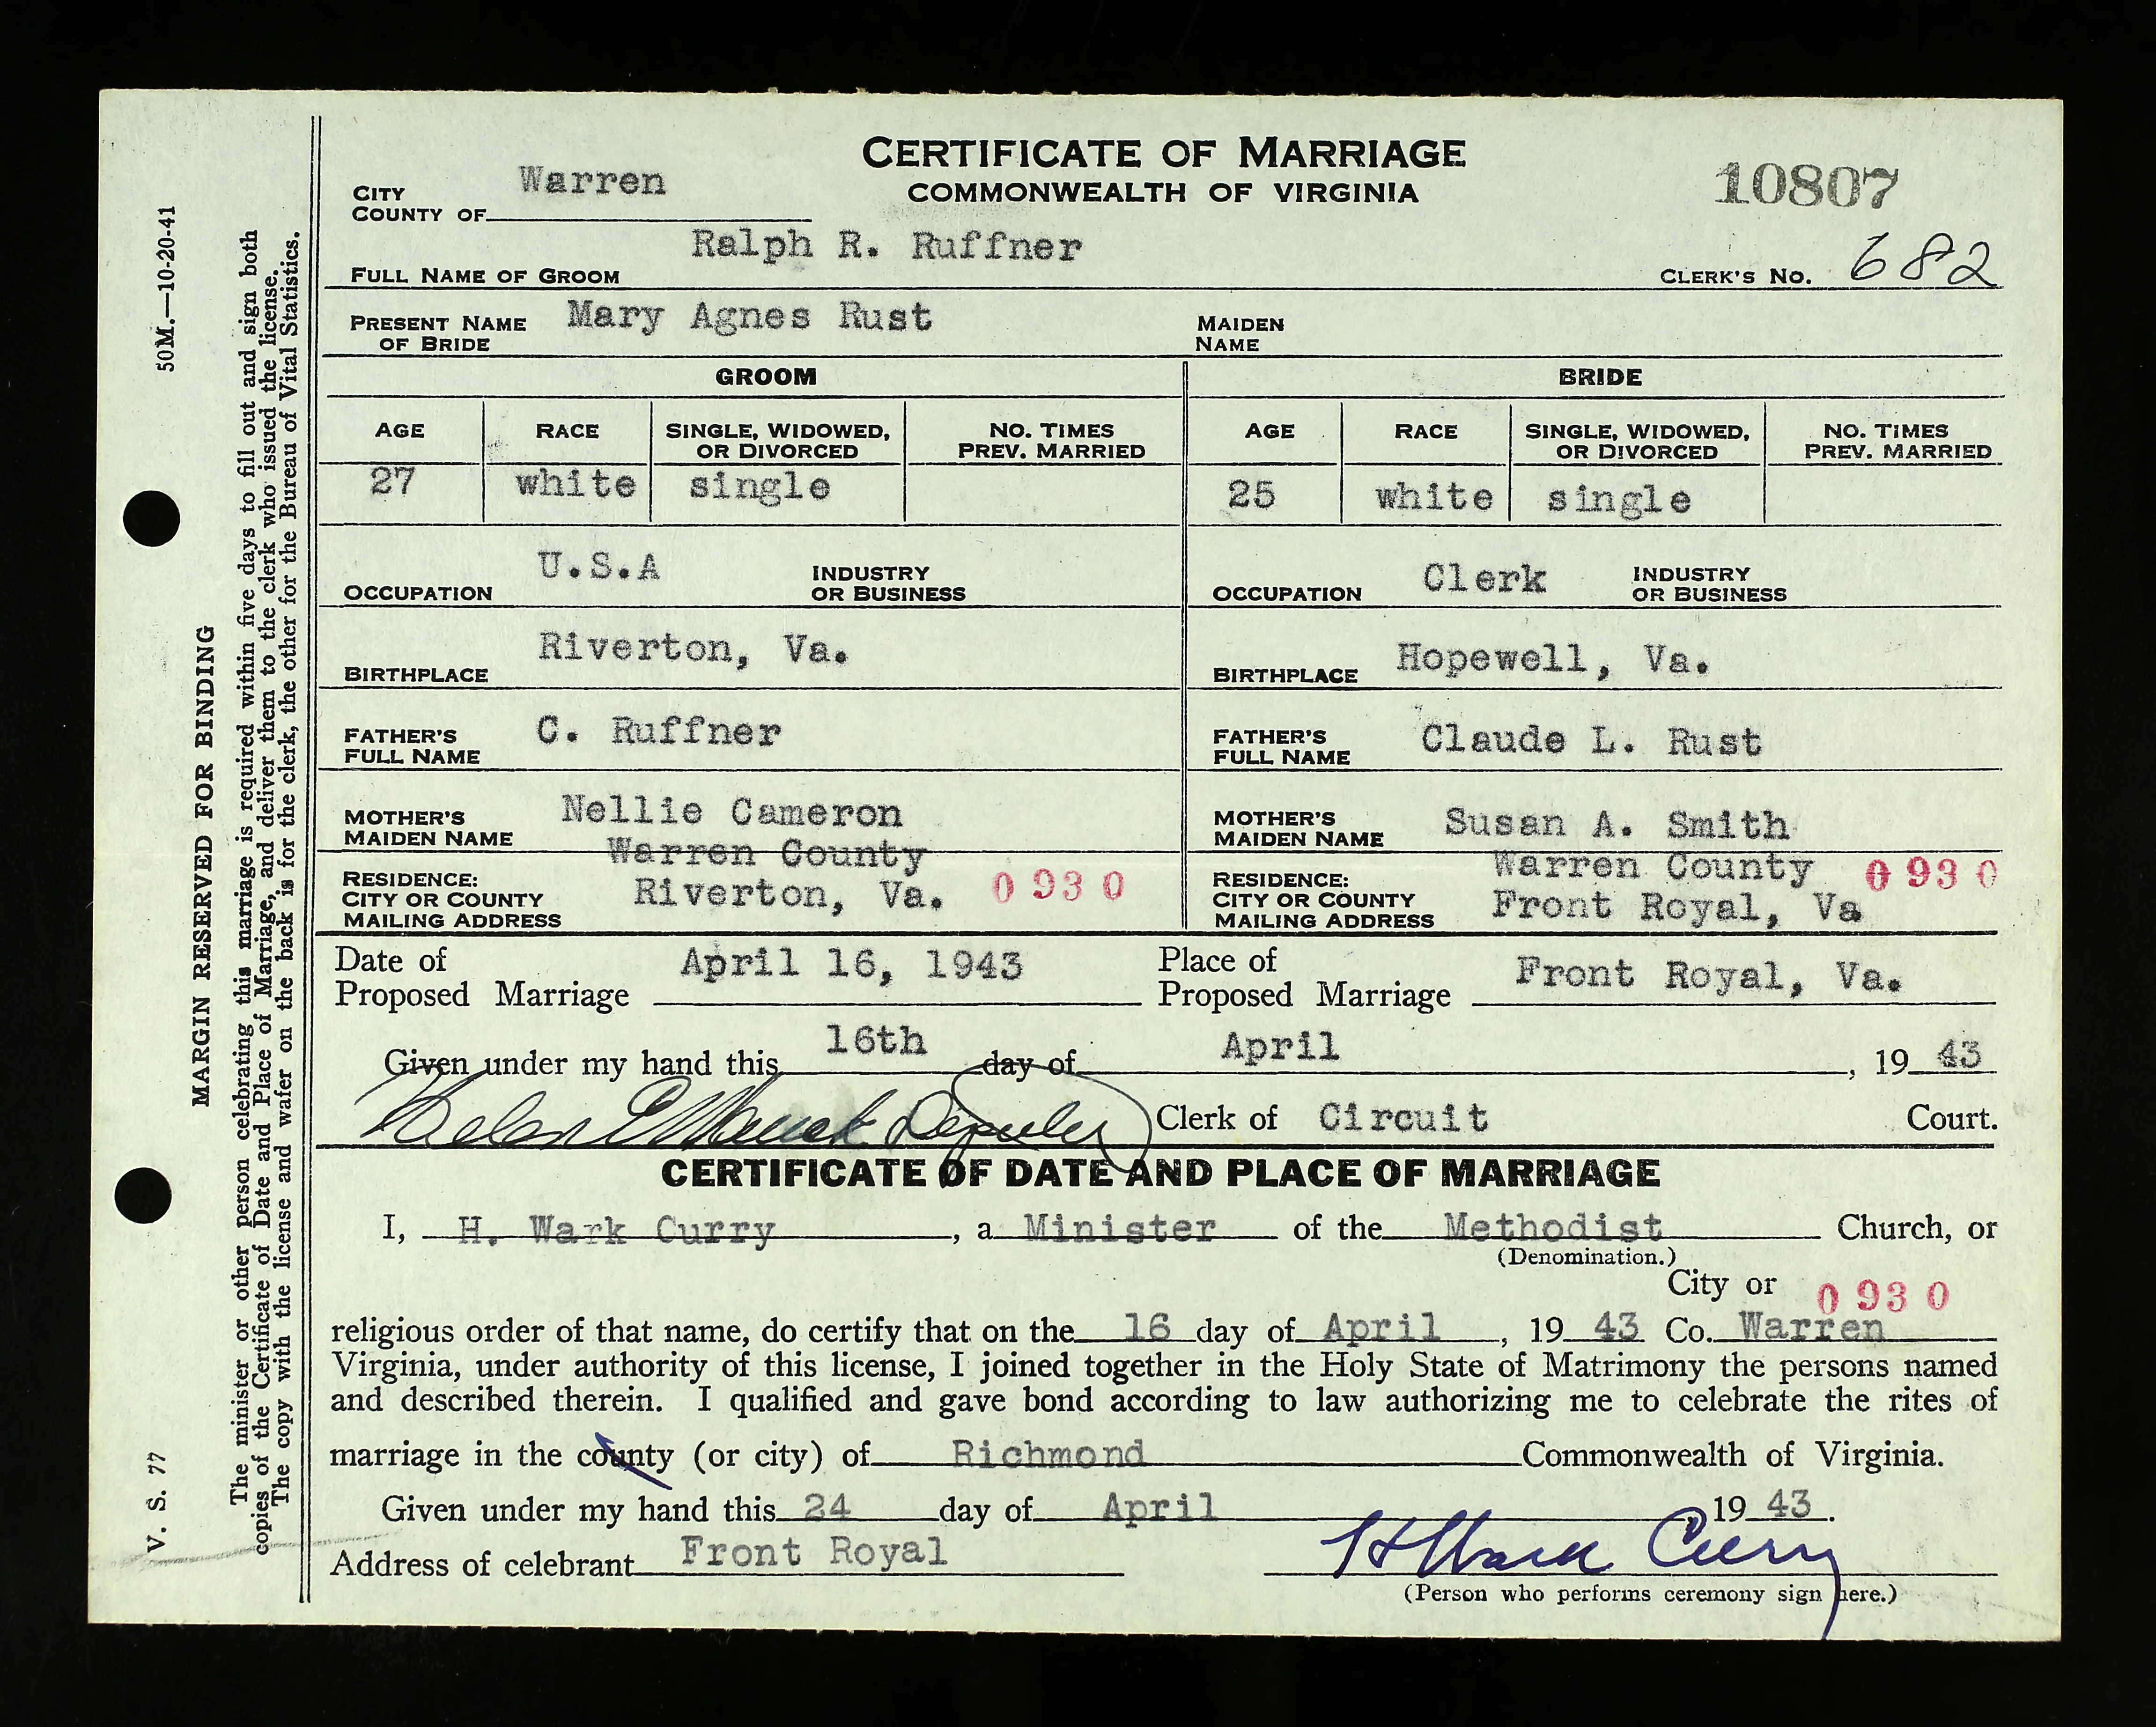 CERTIFICATE OF MARRIAGE
COMMONWEALTH OF VIRGINIA
10807
CITY
COUNTY OF Warren
FULL NAME OF GROOM Ralph R. Ruffner
CLERK'S NO. 682
PRESENT NAME OF BRIDE Mary Agnes Rust MAIDEN NAME
GROOM BRIDE
AGE RACE SINGLE, WIDOWED, OR DIVORCED NO. TIMES PREV. MARRIED AGE RACE SINGLE, WIDOWED, OR DIVORCED NO. TIMES PREV. MARRIED
27 white single 25 white single
OCCUPATION U.S.A INDUSTRY OR BUSINESS OCCUPATION Clerk INDUSTRY OR BUSINESS
BIRTHPLACE Riverton, Va. BIRTHPLACE Hopewell, Va.
FATHER'S FULL NAME C. Ruffner FATHER'S FULL NAME Claude L. Rust
MOTHER'S MAIDEN NAME Nellie Cameron MOTHER'S MAIDEN NAME Susan A. Smith
RESIDENCE: CITY OR COUNTY MAILING ADDRESS Warren County Riverton, Va. 0930 RESIDENCE: CITY OR COUNTY MAILING ADDRESS Warren County Front Royal, Va 0930
Date of Proposed Marriage April 16, 1943 Place of Proposed Marriage Front Royal, Va.
Given under my hand this 16th day of April, 19 43
Helen E Deputy Clerk of Circuit Court.
CERTIFICATE OF DATE AND PLACE OF MARRIAGE
I, H. Wark Curry, a Minister of the Methodist Church, or
(Denomination.)
City or 0930
religious order of that name, do certify that on the 16 day of April, 19 43 Co. Warren
Virginia, under authority of this license, I joined together in the Holy State of Matrimony the persons named
and described therein. I qualified and gave bond according to law authorizing me to celebrate the rites of
marriage in the county (or city) of Richmond Commonwealth of Virginia.
Given under my hand this 24 day of April, 19 43.
Address of celebrant Front Royal H Wark Curry
(Person who performs ceremony sign here.)
50M.—10-20-41
V. S. 77
MARGIN RESERVED FOR BINDING
The minister or other person celebrating this marriage is required within five days to fill out and sign both
copies of the Certificate of Date and Place of Marriage, and deliver them to the clerk who issued the license.
The copy with the license and wafer on the back is for the clerk, the other for the Bureau of Vital Statistics.